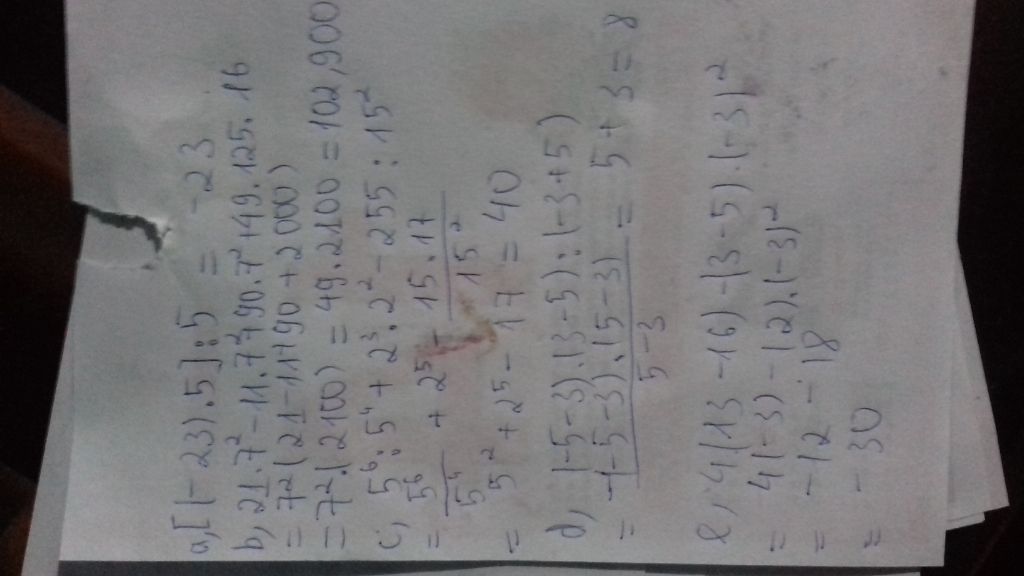 a, [(-23).5]:5 = -23
b, 21.7² - 11.7² + 90.7² + 49.125.16
= 7²(21 - 11 + 90 + 2000)
= 7².(2100) = 49.2100 = 102,900
c, 5⁶:5⁴ + 2³.2² - 255:15²
= 5⁶/5⁴ + 2⁵ - 15.17/15²
= 5² + 2⁵ - 17 = 40
d, (-5-3).(3-5):(-3+5)
= -(-5-3).(5-3)/5-3 = 5+3 = 8
e, 4(13-16) - (3-5).(-3)²
= 4(-3) - (-2).(-3)²
= -12 - 18
= -30